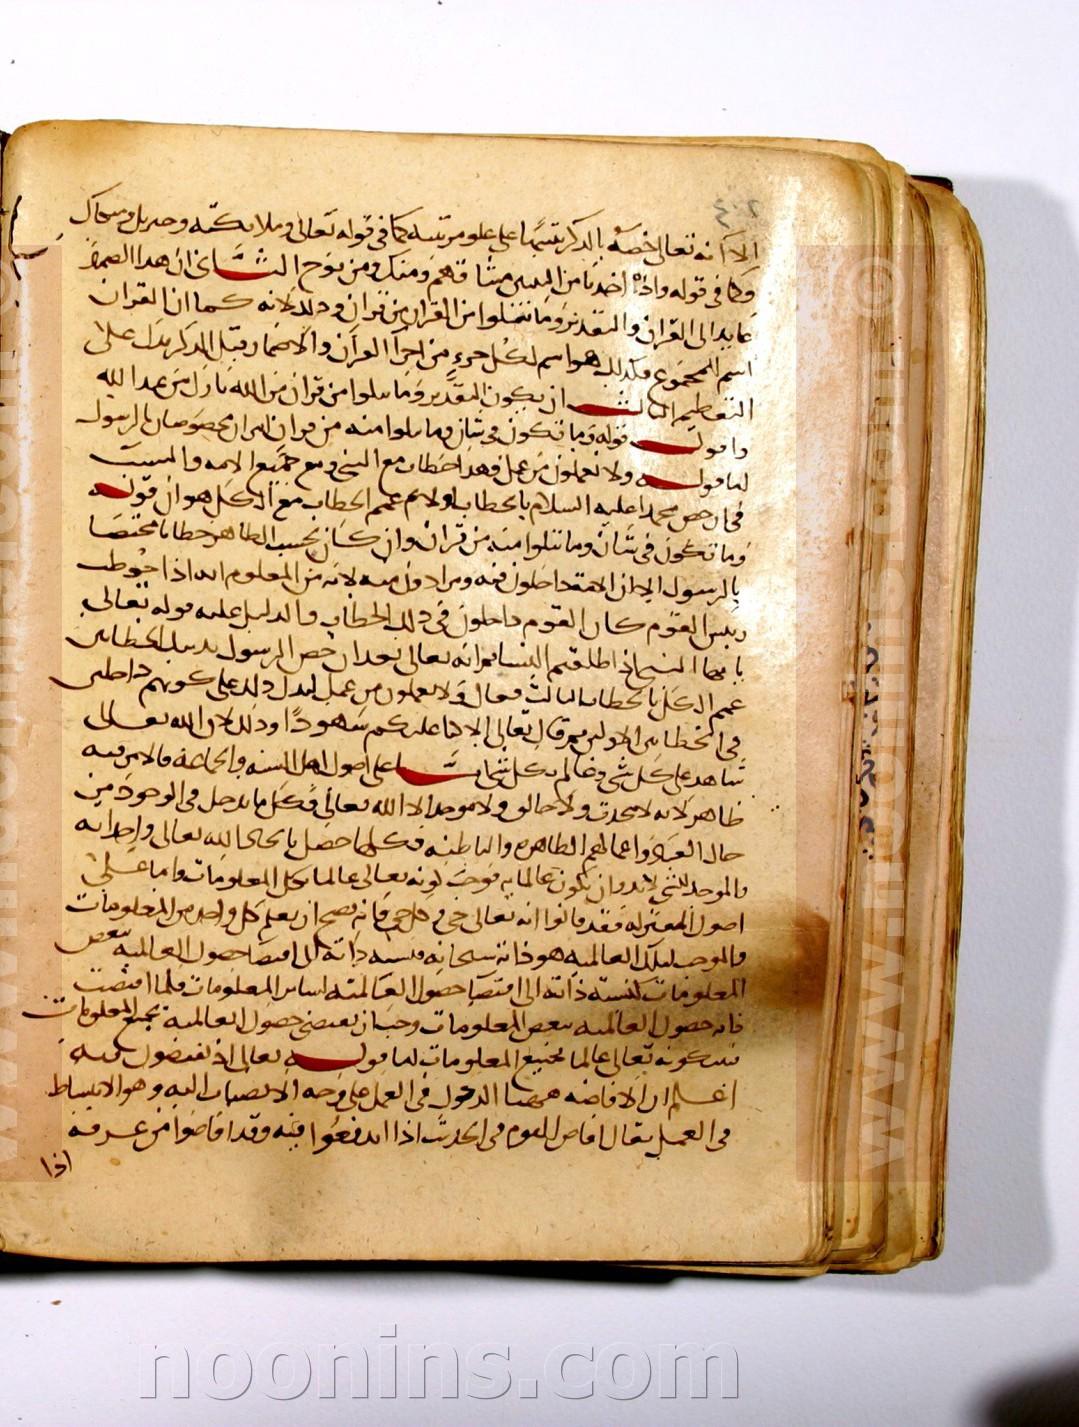 الا انه تعالى خصه بالذكر تنبيها على علو مرتبته كما في قوله تعالى وملائكته وجبريل وميكال
وكما في قوله واذ اخذنا من النبيين ميثاقهم ومنك ومن نوح الثاني ان هذا الضمير
عايد الى القران والتقدير وما تتلوا من القران من قران وذلك لانه كما ان القران
اسم للمجموع فكذلك هو اسم لكل جزء من اجزا القران والاضمار قبل الذكر يدل على
التعظيم الثالث ان يكون التقدير وما تتلوا من قران من الله نازل من عند الله
واقول قوله وما تكون في شان وما تتلوا منه من قران امران مخصوصان بالرسول
لما قوله ولا تعملون من عمل فهذا خطاب مع النبي ومع جميع الامه والسبب
في ان خص محمدا عليه السلام بالخطاب اولا ثم عمم الخطاب مع الكل هو ان قوله
وما تكون في شان وما تتلوا منه من قران وان كان بحسب الظاهر خطابا مختصا
بالرسول الا ان الامة داخلون فيه ومرادون منه لانه من المعلوم انه اذا خوطب
رييس القوم كان القوم داخلون في ذلك الخطاب والدليل عليه قوله تعالى
يا ايها النبي اذا طلقتم النسا ثم انه تعالى بعد ان خص الرسول بذينك الخطابين
عمم الكل بالخطاب الثالث فقال ولا تعملون من عمل ليدل ذلك على كونهم داخلين
في الخطابين الاولين ثم قال تعالى الا كنا عليكم شهودا وذلك لان الله تعالى
شاهد على كل شي وعالم بكل شي اما على اصول اهل السنه والجماعة فالامر فيه
ظاهر لانه لا محدث ولا خالق ولا موجد الا الله تعالى فكل ما يدخل في الوجود من
افعال العباد واعمالهم الظاهره والباطنه فكلها حصل بايجاد الله تعالى واحداثه
والموجد للشي لابد وان يكون عالما به فوجب كونه تعالى عالما بكل المعلومات واما على
اصول المعتزله فقد قالوا انه تعالى حي وكل حي فانه يصح ان يعلم كل واحد من المعلومات
والموجب لتلك العالمية هو ذاته سبحانه فنسبة ذاته الى اقتضا حصول العالمية ببعض
المعلومات كنسبة ذاته الى اقتضا حصول العالمية بساير المعلومات فلما اقتضت
ذاته حصول العالمية ببعض المعلومات وجب ان تقتضي حصول العالمية بجميع المعلومات
فثبت كونه تعالى عالما بجميع المعلومات اما قوله تعالى اذ تفيضون فيه
اعلم ان الافاضه ههنا الدخول في العمل على وجه الانصباب اليه وهو الانبساط
في العمل يقال افاض القوم في الحديث اذا اندفعوا فيه وقد افاضوا من عرفه
اذا
noonins.com